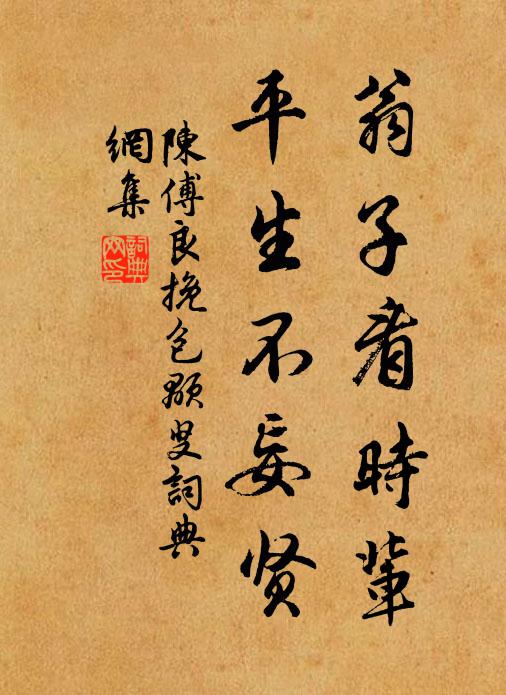 翁子看時輩
平生不妄贤
陳傅良挽包顒叟詞典
網集
詞典
网印